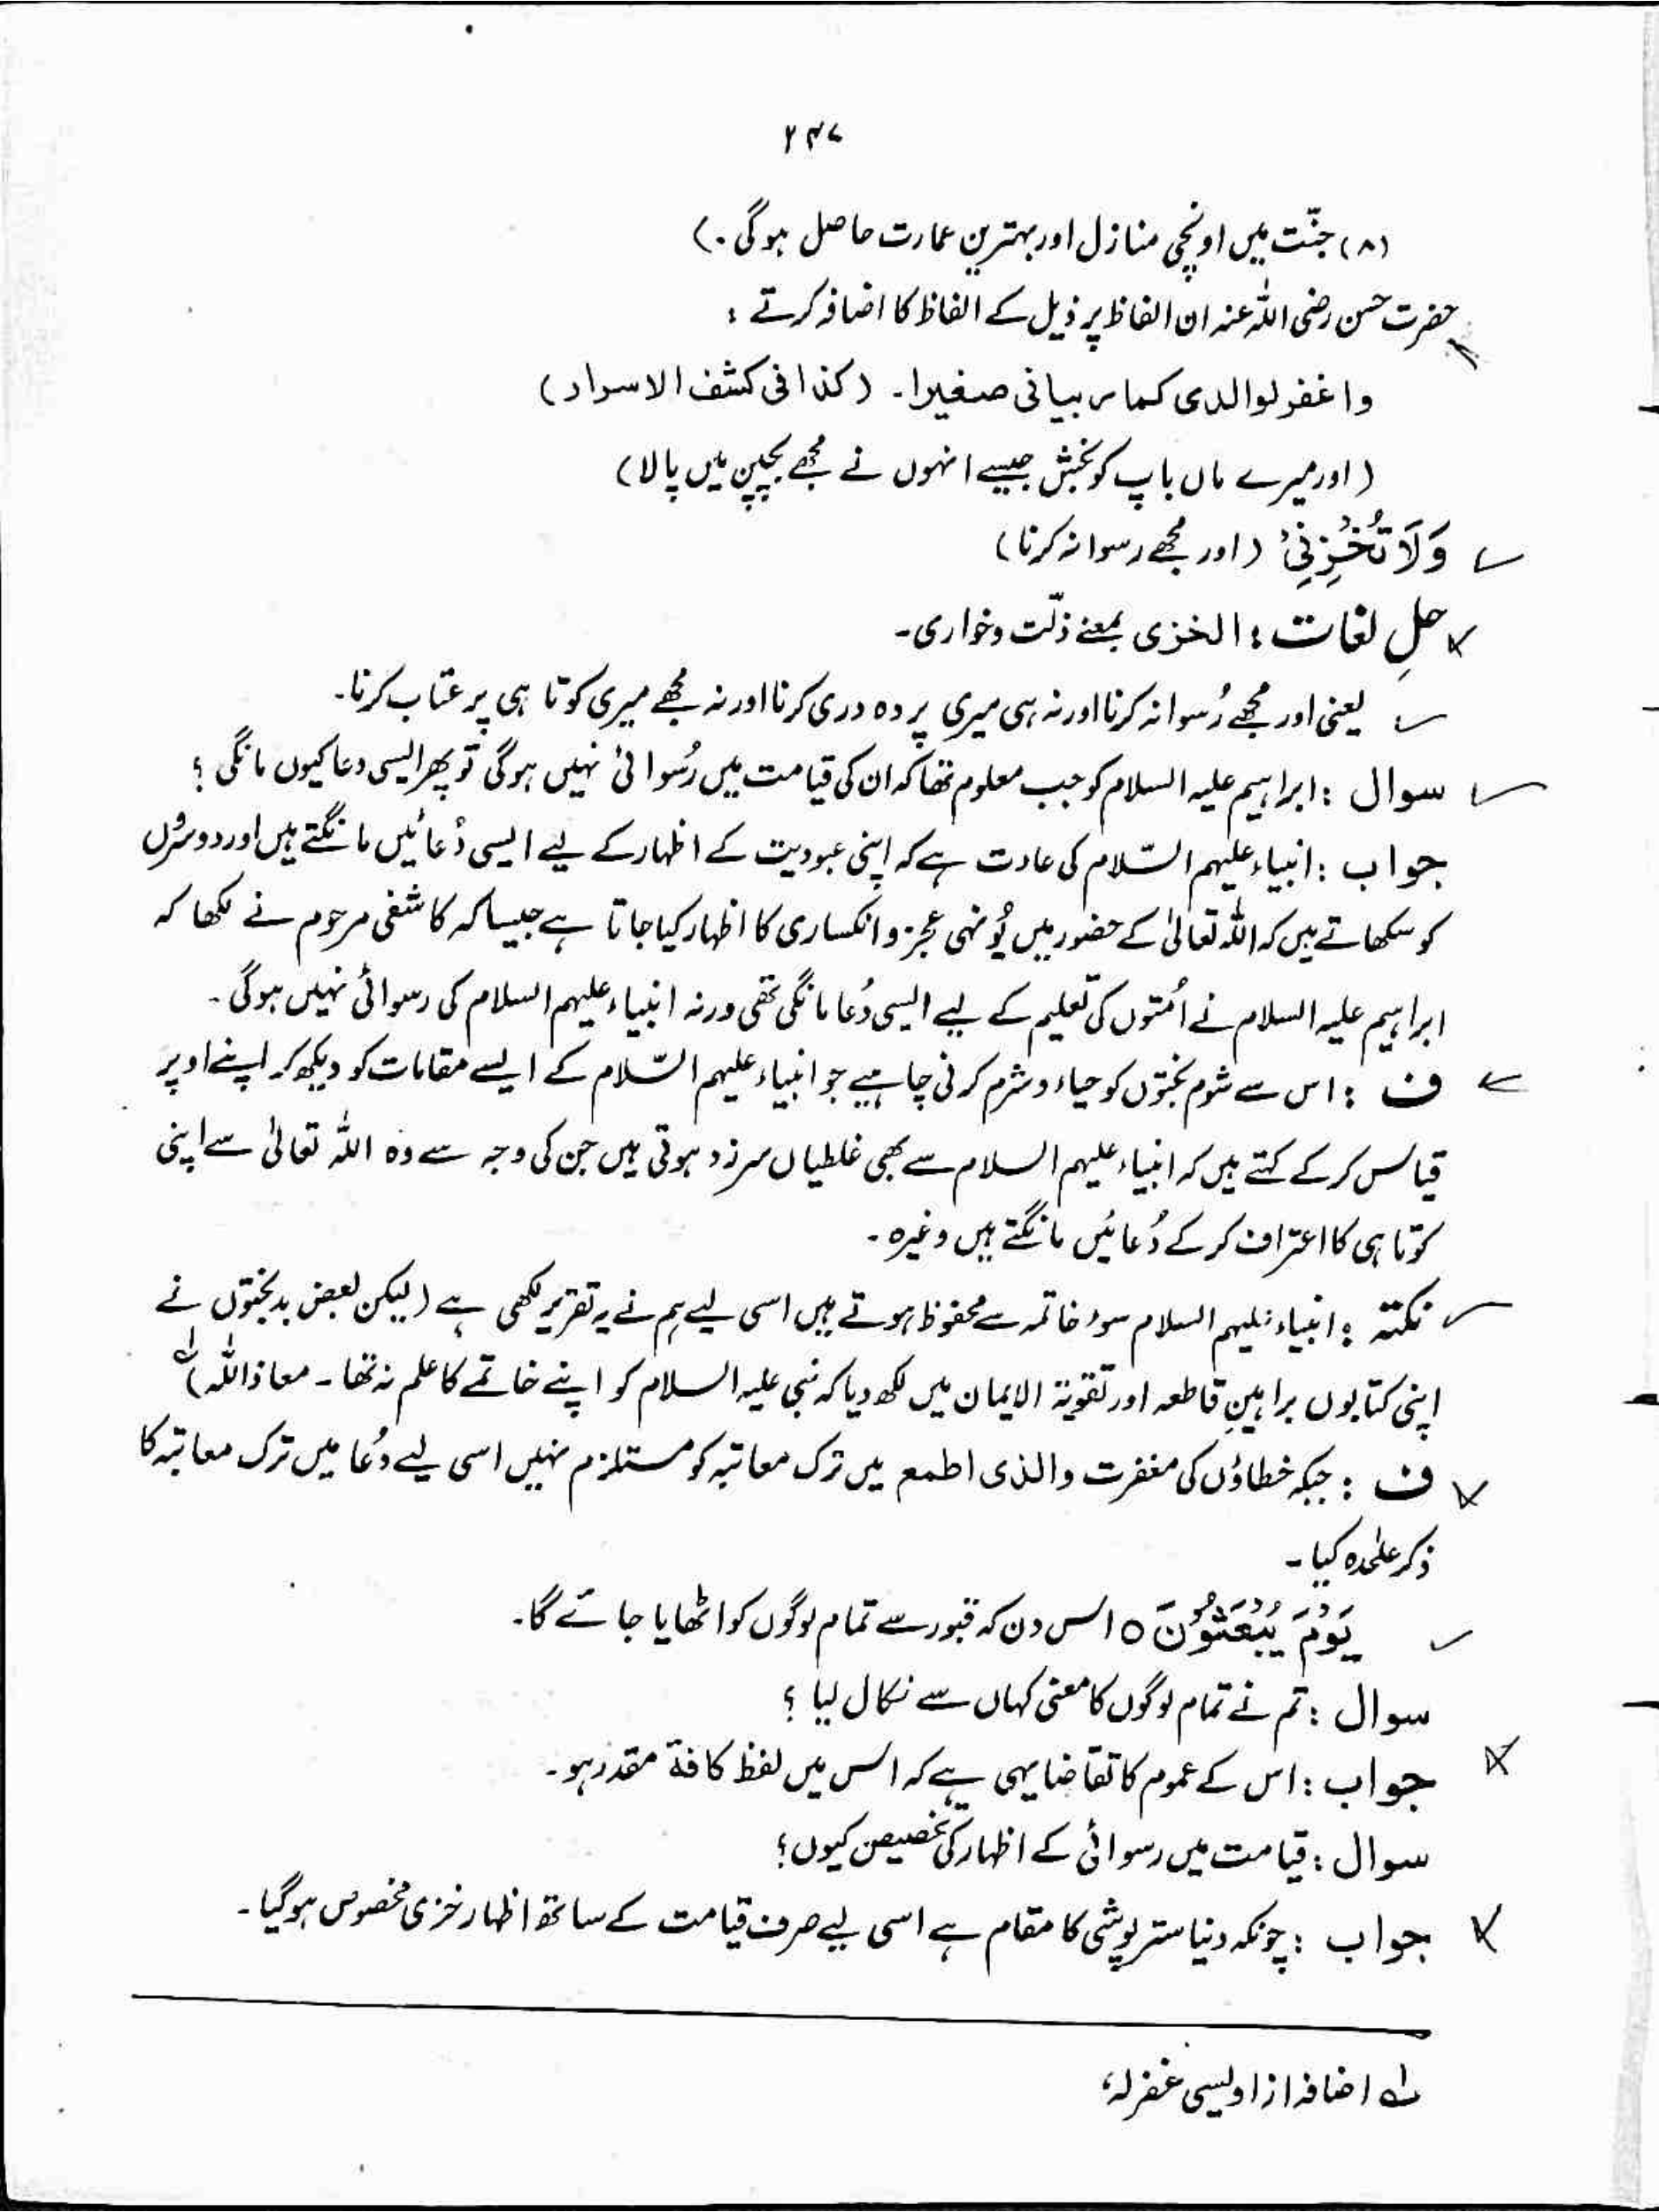 ۲۴۷
(۸) جنّت میں اونچی منازل اور بہترین عمارت حاصل ہوگی۔)
حضرت حسن رضی اللہ عنہ ان الفاظ پر ذیل کے الفاظ کا اضافہ کرتے :
واغفر لوالدی کما ربیانی صغیرا۔ (کذا فی کشف الاسرار)
(اور میرے ماں باپ کو بخش جیسے انہوں نے مجھے بچپن میں پالا)
وَلَا تُخْزِنِیْ (اور مجھے رسوا نہ کرنا)
حلِ لغات : الخزی بمعنے ذلّت و خواری۔
یعنی اور مجھے رُسوا نہ کرنا اور نہ ہی میری پردہ دری کرنا اور نہ مجھے میری کوتاہی پر عتاب کرنا۔
سوال : ابراہیم علیہ السلام کو جب معلوم تھا کہ ان کی قیامت میں رُسوائی نہیں ہوگی تو پھر ایسی دعا کیوں مانگی ؟
جواب : انبیاء علیہم السّلام کی عادت ہے کہ اپنی عبودیت کے اظہار کے لیے ایسی دُعائیں مانگتے ہیں اور دوسروں
کو سکھاتے ہیں کہ اللہ تعالیٰ کے حضور میں یُونہی عجز و انکساری کا اظہار کیا جاتا ہے جیسا کہ کاشفی مرحوم نے لکھا کہ
ابراہیم علیہ السلام نے اُمتوں کی تعلیم کے لیے ایسی دُعا مانگی تھی ورنہ انبیاء علیہم السلام کی رسوائی نہیں ہوگی۔
ف : اس سے شوم بختوں کو حیاء و شرم کرنی چاہیے جو انبیاء علیہم السّلام کے ایسے مقامات کو دیکھ کر اپنے اوپر
قیاس کرکے کہتے ہیں کہ انبیاء علیہم السلام سے بھی غلطیاں سرزد ہوتی ہیں جن کی وجہ سے وہ اللہ تعالیٰ سے اپنی
کوتاہی کا اعتراف کرکے دُعائیں مانگتے ہیں وغیرہ۔
نکتہ : انبیاء علیہم السلام سوءِ خاتمہ سے محفوظ ہوتے ہیں اسی لیے ہم نے یہ تقریر لکھی ہے (لیکن بعض بدبختوں نے
اپنی کتابوں براہینِ قاطعہ اور تقویۃ الایمان میں لکھ دیا کہ نبی علیہ السلام کو اپنے خاتمے کا علم نہ تھا۔ معاذ اللہ) لہ
ف : جبکہ خطاؤں کی مغفرت والذی اطمع میں ترک معاتبہ کو مستلزم نہیں اسی لیے دُعا میں ترک معاتبہ کا
ذکر علٰحدہ کیا۔
یَوْمَ یُبْعَثُوْنَ ○ اس دن کہ قبور سے تمام لوگوں کو اٹھایا جائے گا۔
سوال : تم نے تمام لوگوں کا معنی کہاں سے نکال لیا ؟
جواب : اس کے عموم کا تقاضا یہی ہے کہ اس میں لفظ کافۃ مقدر ہو۔
سوال : قیامت میں رسوائی کے اظہار کی تخصیص کیوں؟
جواب : چونکہ دنیا ستر پوشی کا مقام ہے اسی لیے صرف قیامت کے ساتھ اظہار خزی مخصوص ہوگیا۔
لہ اضافہ از اویسی غفرلہ،